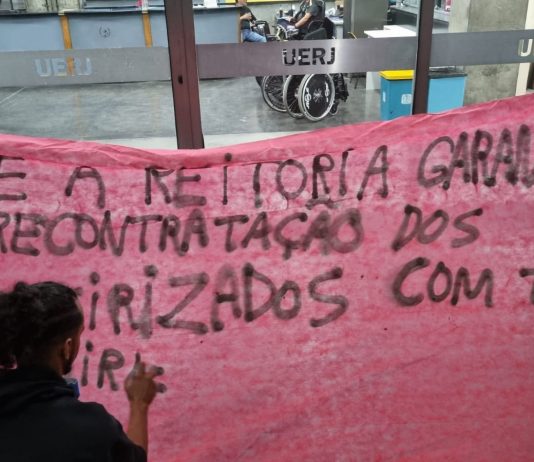 UERJ UERJ UE
E A REITORIA GARAN
RECONTRATAÇÃO DOS
IRIZADOS COM T
IRE